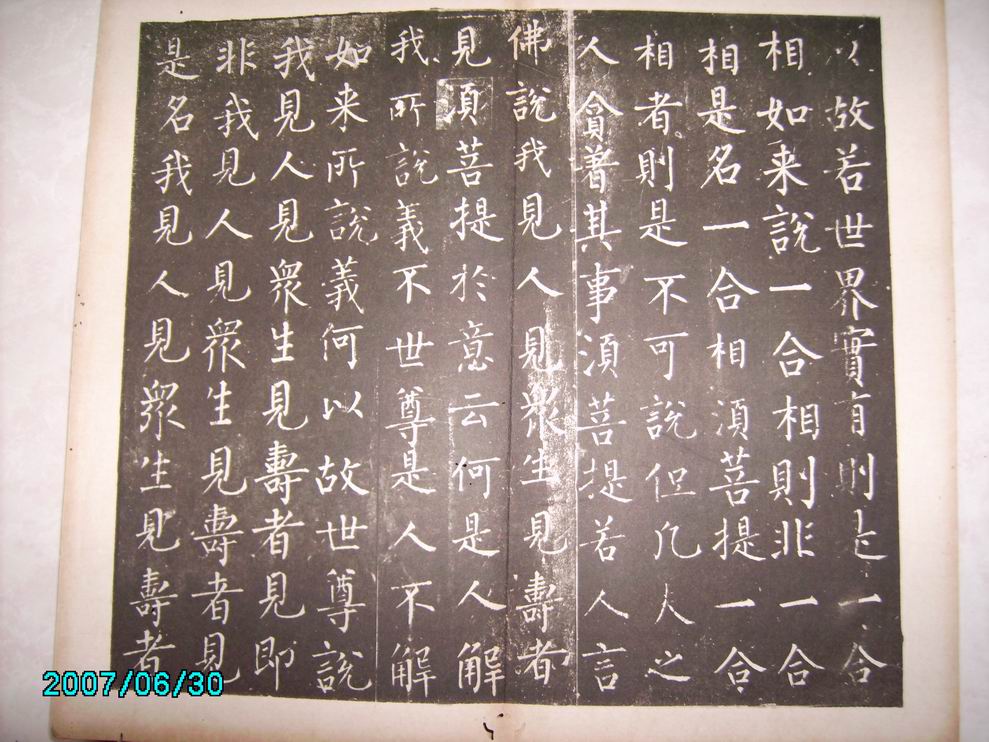 以故若世界實有則是一合
相如来說一合相則非一合
相是名一合相湏菩提一合
相者則是不可說但凡人之
人貪著其事湏菩提若人言
佛說我見人見衆生見壽者
見湏菩提於意云何是人解
我所說義不世尊是人不解
如来所說義何以故世尊說
我見人見衆生見壽者見即
非我見人見衆生見壽者見
是名我見人見衆生見壽者
2007/06/30